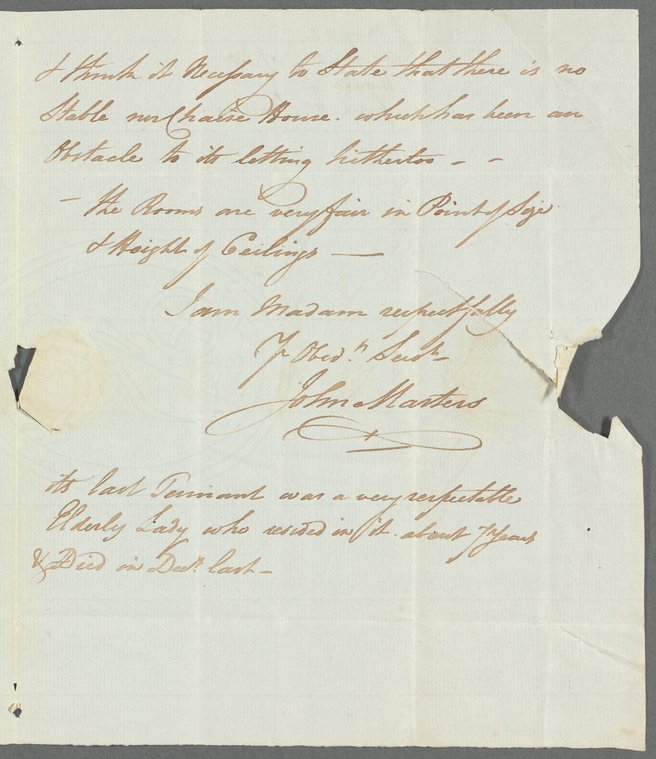 I think it Necessary to State that there is no
Stable nor Chaise House. which has been an
Obstacle to its letting hithertoo - -
- the Rooms are very fair in Point of Size
& Height of Ceilings —
I am Madam respectfully
Yr Obedt. Servt.
John Masters
its last Tennant was a very respectable
Elderly Lady who resided in it about 7 Years
& Died in Decr. last -